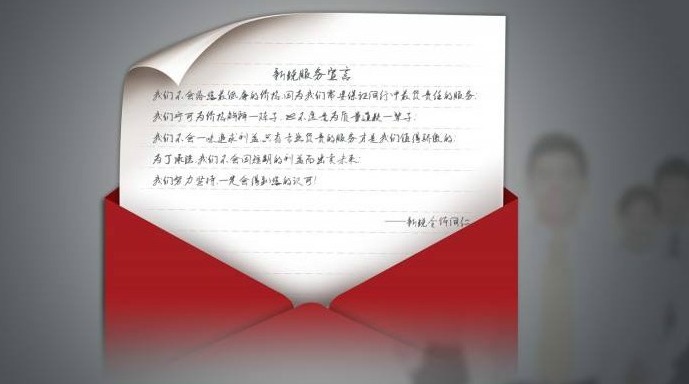 新锐服务宣言
我们不会给您最低廉的价格,因为我们需要保证同行中最负责任的服务;
我们宁可为价格解释一阵子,也不愿意为质量道歉一辈子;
我们不会一味追求利益,只有专业负责的服务才是我们值得骄傲的;
为了承诺,我们不会因短期的利益而出卖未来;
我们努力坚持,一定会得到您的认可!
——新锐全体同仁